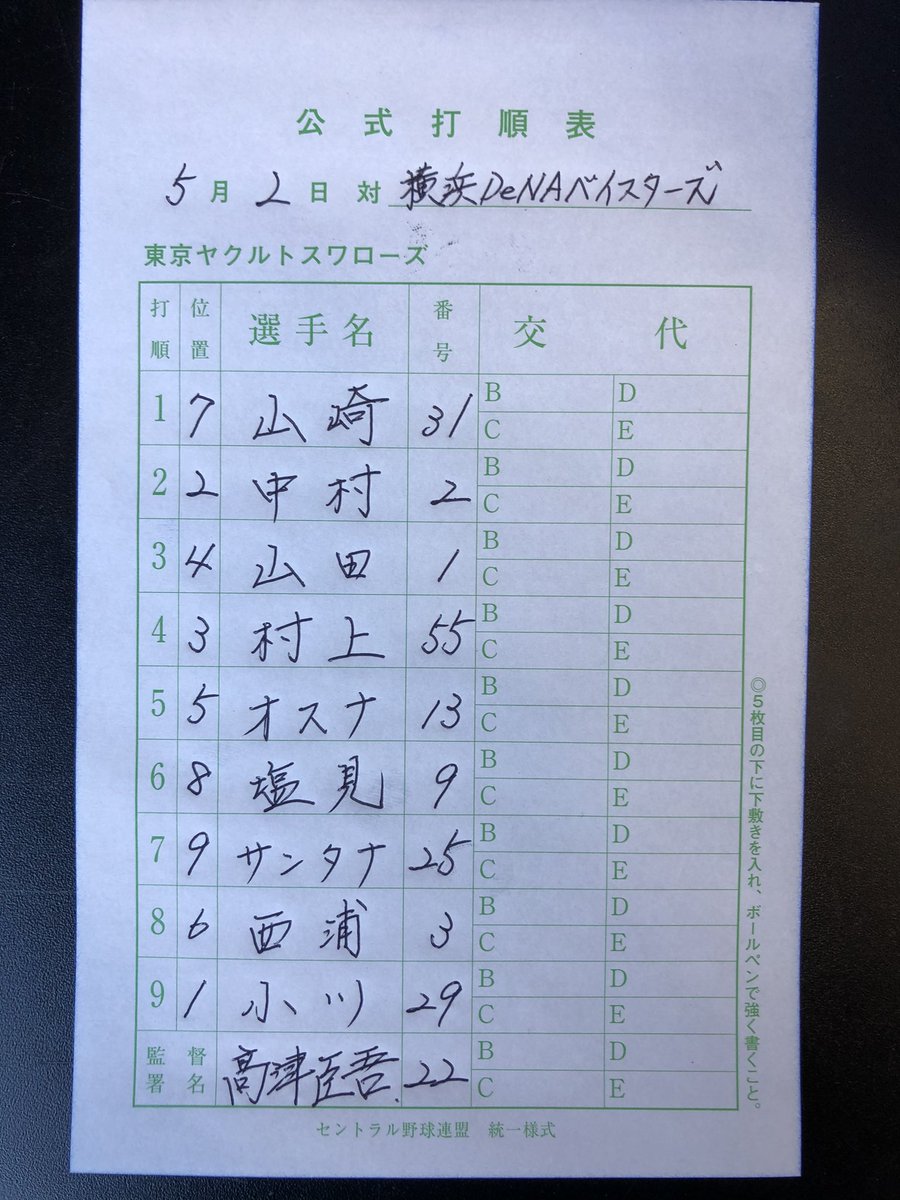 公式打順表
5月2日対 横浜DeNAベイスターズ
東京ヤクルトスワローズ
打順 位置 選手名 番号 交代
1 7 山崎 31 B D C E
2 2 中村 2 B D C E
3 4 山田 1 B D C E
4 3 村上 55 B D C E
5 5 オスナ 13 B D C E
6 8 塩見 9 B D C E
7 9 サンタナ 25 B D C E
8 6 西浦 3 B D C E
9 1 小川 29 B D C E
監督署名 高津臣吾 22 B D C E
セントラル野球連盟 統一様式
◎5枚目の下に下敷きを入れ、ボールペンで強く書くこと。